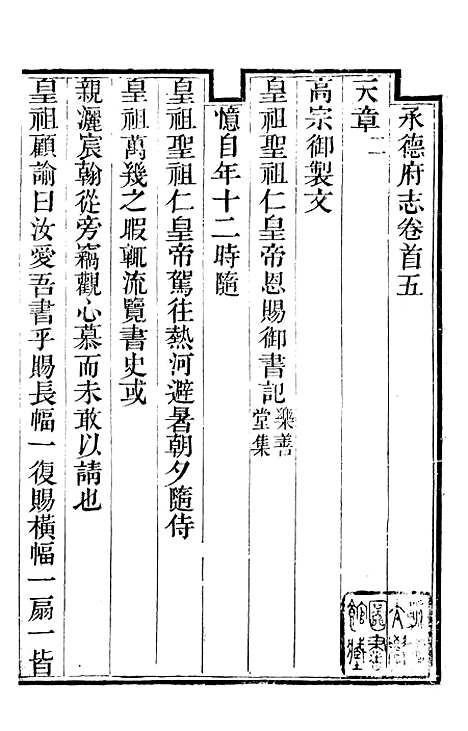 承德府志卷首五
天章二
高宗御製文
皇祖聖祖仁皇帝恩賜御書記樂善堂集
憶自年十二時隨
皇祖聖祖仁皇帝駕往熱河避暑朝夕隨侍
皇祖萬幾之暇輒流覽書史或
親灑宸翰從旁竊觀心慕而未敢以請也
皇祖顧諭曰汝愛吾書乎賜長幅一復賜橫幅一扇一皆